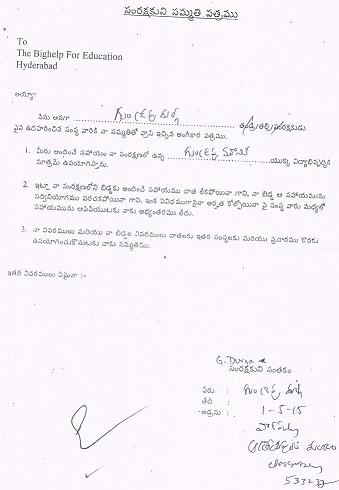 సంరక్షకుని సమ్మతి పత్రము
To
The Bighelp For Education
Hyderabad
అయ్యా!
నేను అనగా తండ్రి/తల్లి/సంరక్షకుడు
పైన ఉదహరించిన సంస్థ వారికి నా సమ్మతితో వ్రాసి ఇచ్చిన అంగీకార పత్రము.
1. మీరు అందించే సహాయం నా సంరక్షణలో ఉన్న యొక్క విద్యాభివృద్ధికి
మాత్రమే ఉపయోగిస్తాను.
2. ఇట్లా నా సంరక్షణలోని బిడ్డకు అందించే సహాయము దాత లేకపోయినా గాని, నా బిడ్డ ఆ సహాయమును
సద్వినియోగము పరచకపోయినా గాని, ఇంక ఏవిధముగానైనా అర్హత కోల్పోయినా పై సంస్థ వారు మధ్యలో
సహాయమును ఆపివేయుటకు నాకు అభ్యంతరము లేదు.
3. నా వివరములు మరియు నా బిడ్డల వివరములు దాతలకు ఇతర సంస్థలకు మరియు ప్రచారము కొరకు
ఉపయోగించుకొనుటకు నాకు సమ్మతము.
ఇతర వివరములు ఏమైనా :-
G. Durga
సంరక్షకుని సంతకం
పేరు :
తేది : 1-5-15
అడ్రసు :